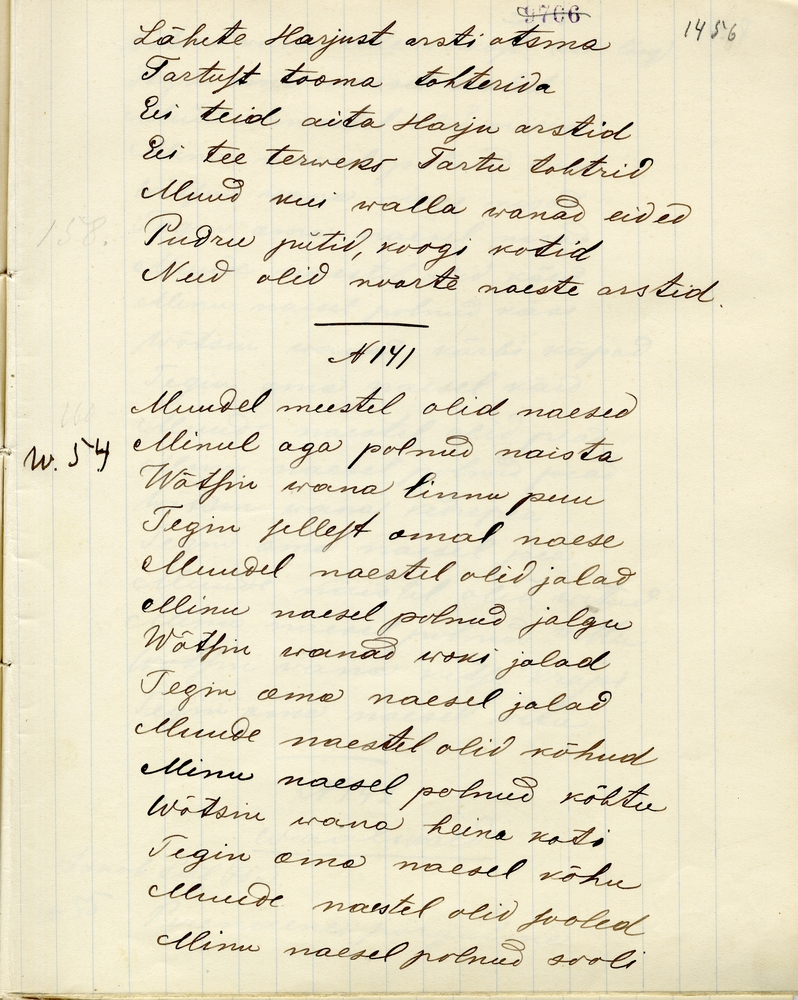 9766
1456
Lähete Harjust arsti otsma
Tartust tooma tohterida
Ei teid aita Harju arstid
Ei tee terweks Tartu tohtrid
Muud kui walla wanad eided
158.
Pudru pütid, koogi kotid
Need olid noorte naeste arstid.
N 141
Muudel meestel olid naesed
Minul aga polnud naista
W. 54
Wõtsin wana linnu puu
Tegin sellest omal naese
Muudel naestel olid jalad
Minu naesel polnud jalgu
Wõtsin wanad woki jalad
Tegin oma naesel jalad
Muude naestel olid kõhud
Minu naesel polnud kõhtu
Wõtsin wana heina koti
Tegin oma naesel kõhu
Muude naestel olid sooled
Minu naesel polnud sooli